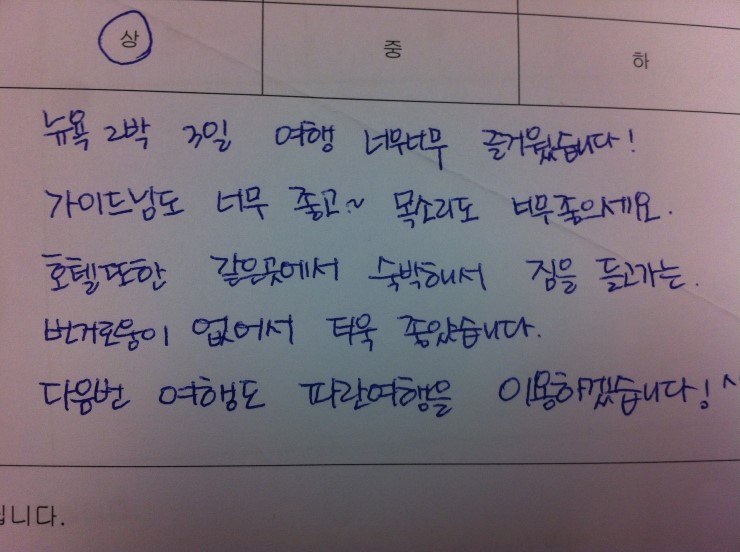 상 중 하
뉴욕 2박 3일 여행 너무너무 즐거웠습니다!
가이드님도 너무 좋고~ 목소리도 너무좋으세요.
호텔또한 같은곳에서 숙박해서 짐을 들고가는.
번거로움이 없어서 더욱 좋았습니다.
다음번 여행도 파란여행을 이용하겠습니다!
니다.